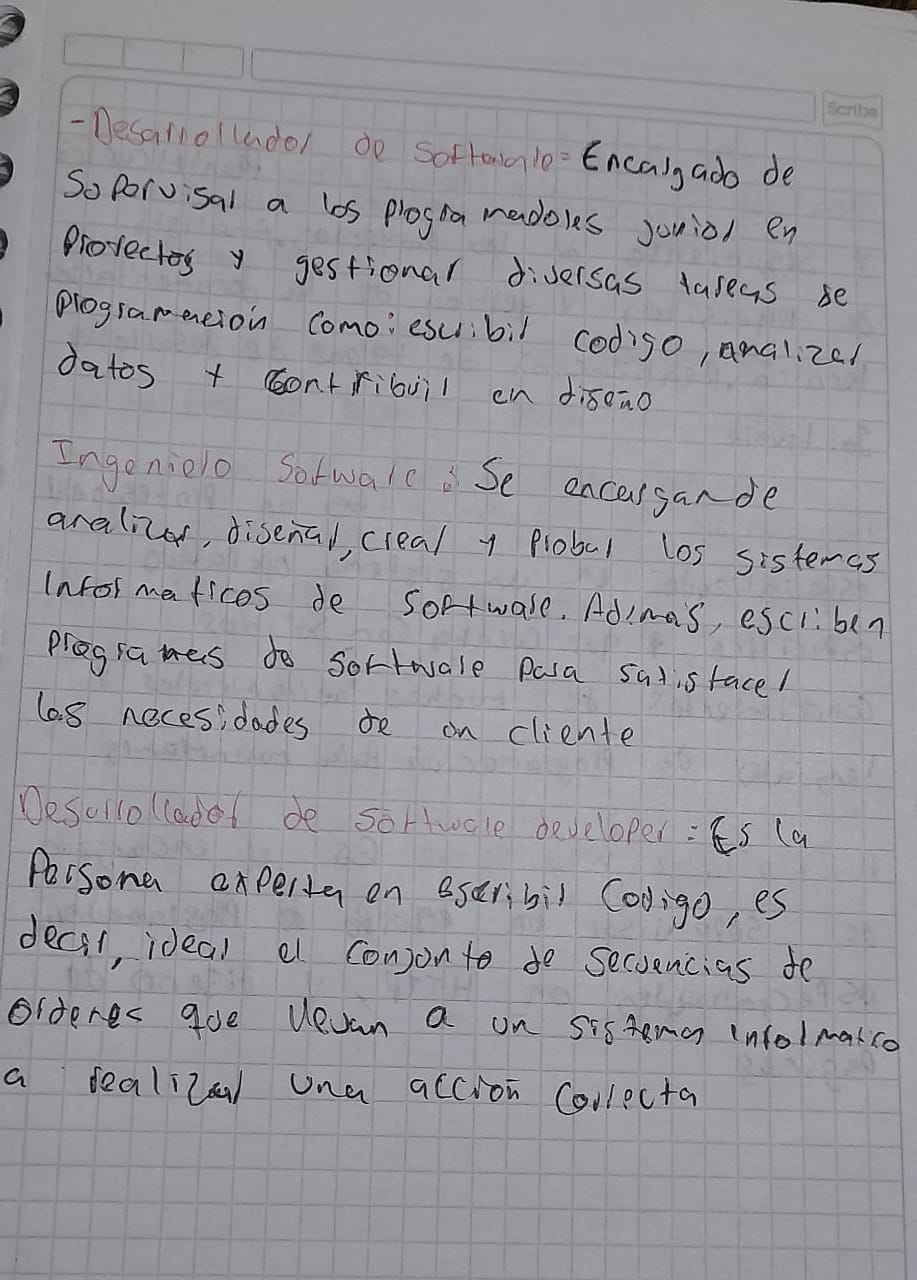 Scribe
-Desarrollador de Software= Encargado de
Soporvisar a los programadores junior en
Provectos y gestionar diversas tareas se
programación como: escribir codigo, analizar
datos + contribuir en diseño
Ingeniero Sotware: Se encargan de
analizar, diseñar, crear y probar los sistemas
informaticos de software. Ademas, escriben
programas de software para satisfacer
las necesidades de un cliente
Desarrollador de software developer: Es la
Persona experta en escribir Codigo, es
decir, idear el conjonto de secuencias de
ordenes que llevan a un sistema informatico
a realizar una acción correcta